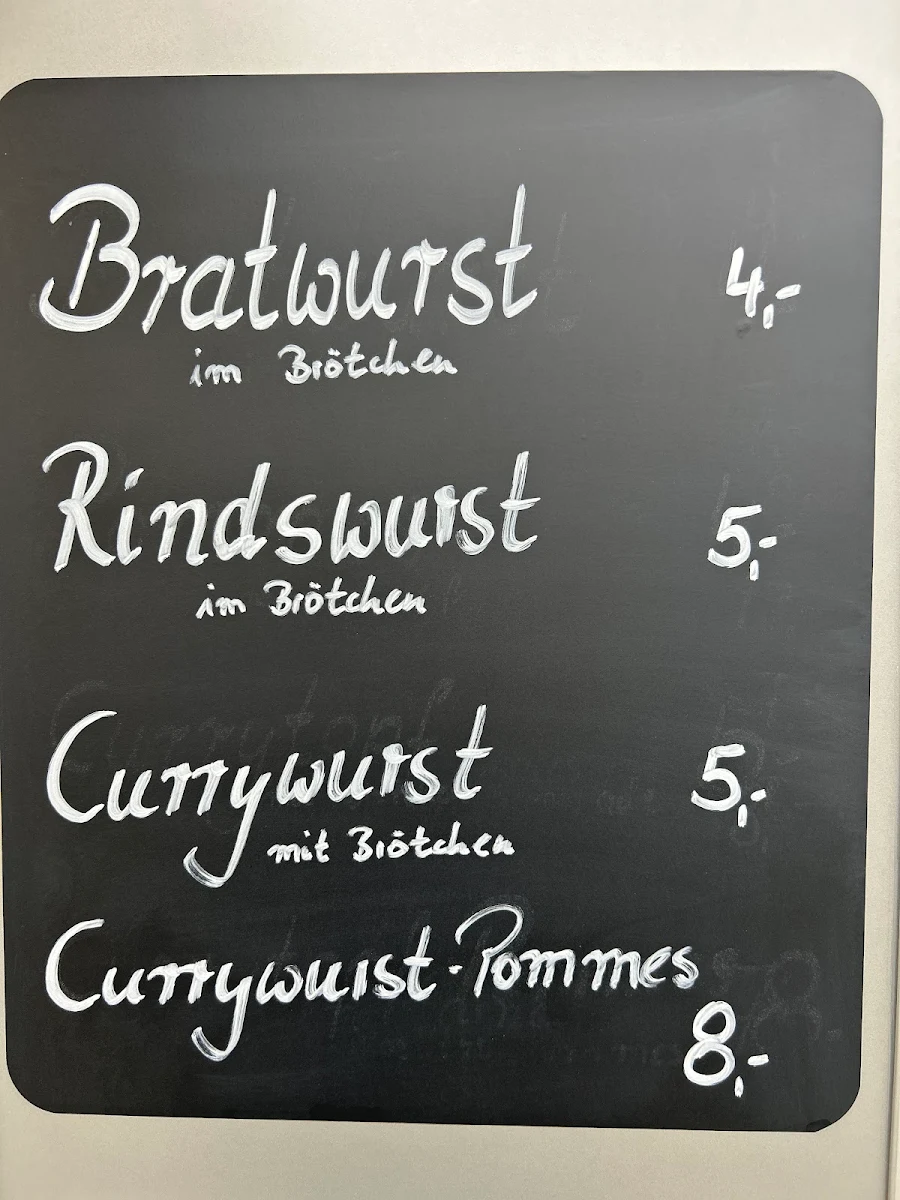 Bratwurst 4,-
im Brötchen
Rindswurst 5,-
im Brötchen
Currywurst 5,-
mit Brötchen
Currywurst-Pommes
8,-